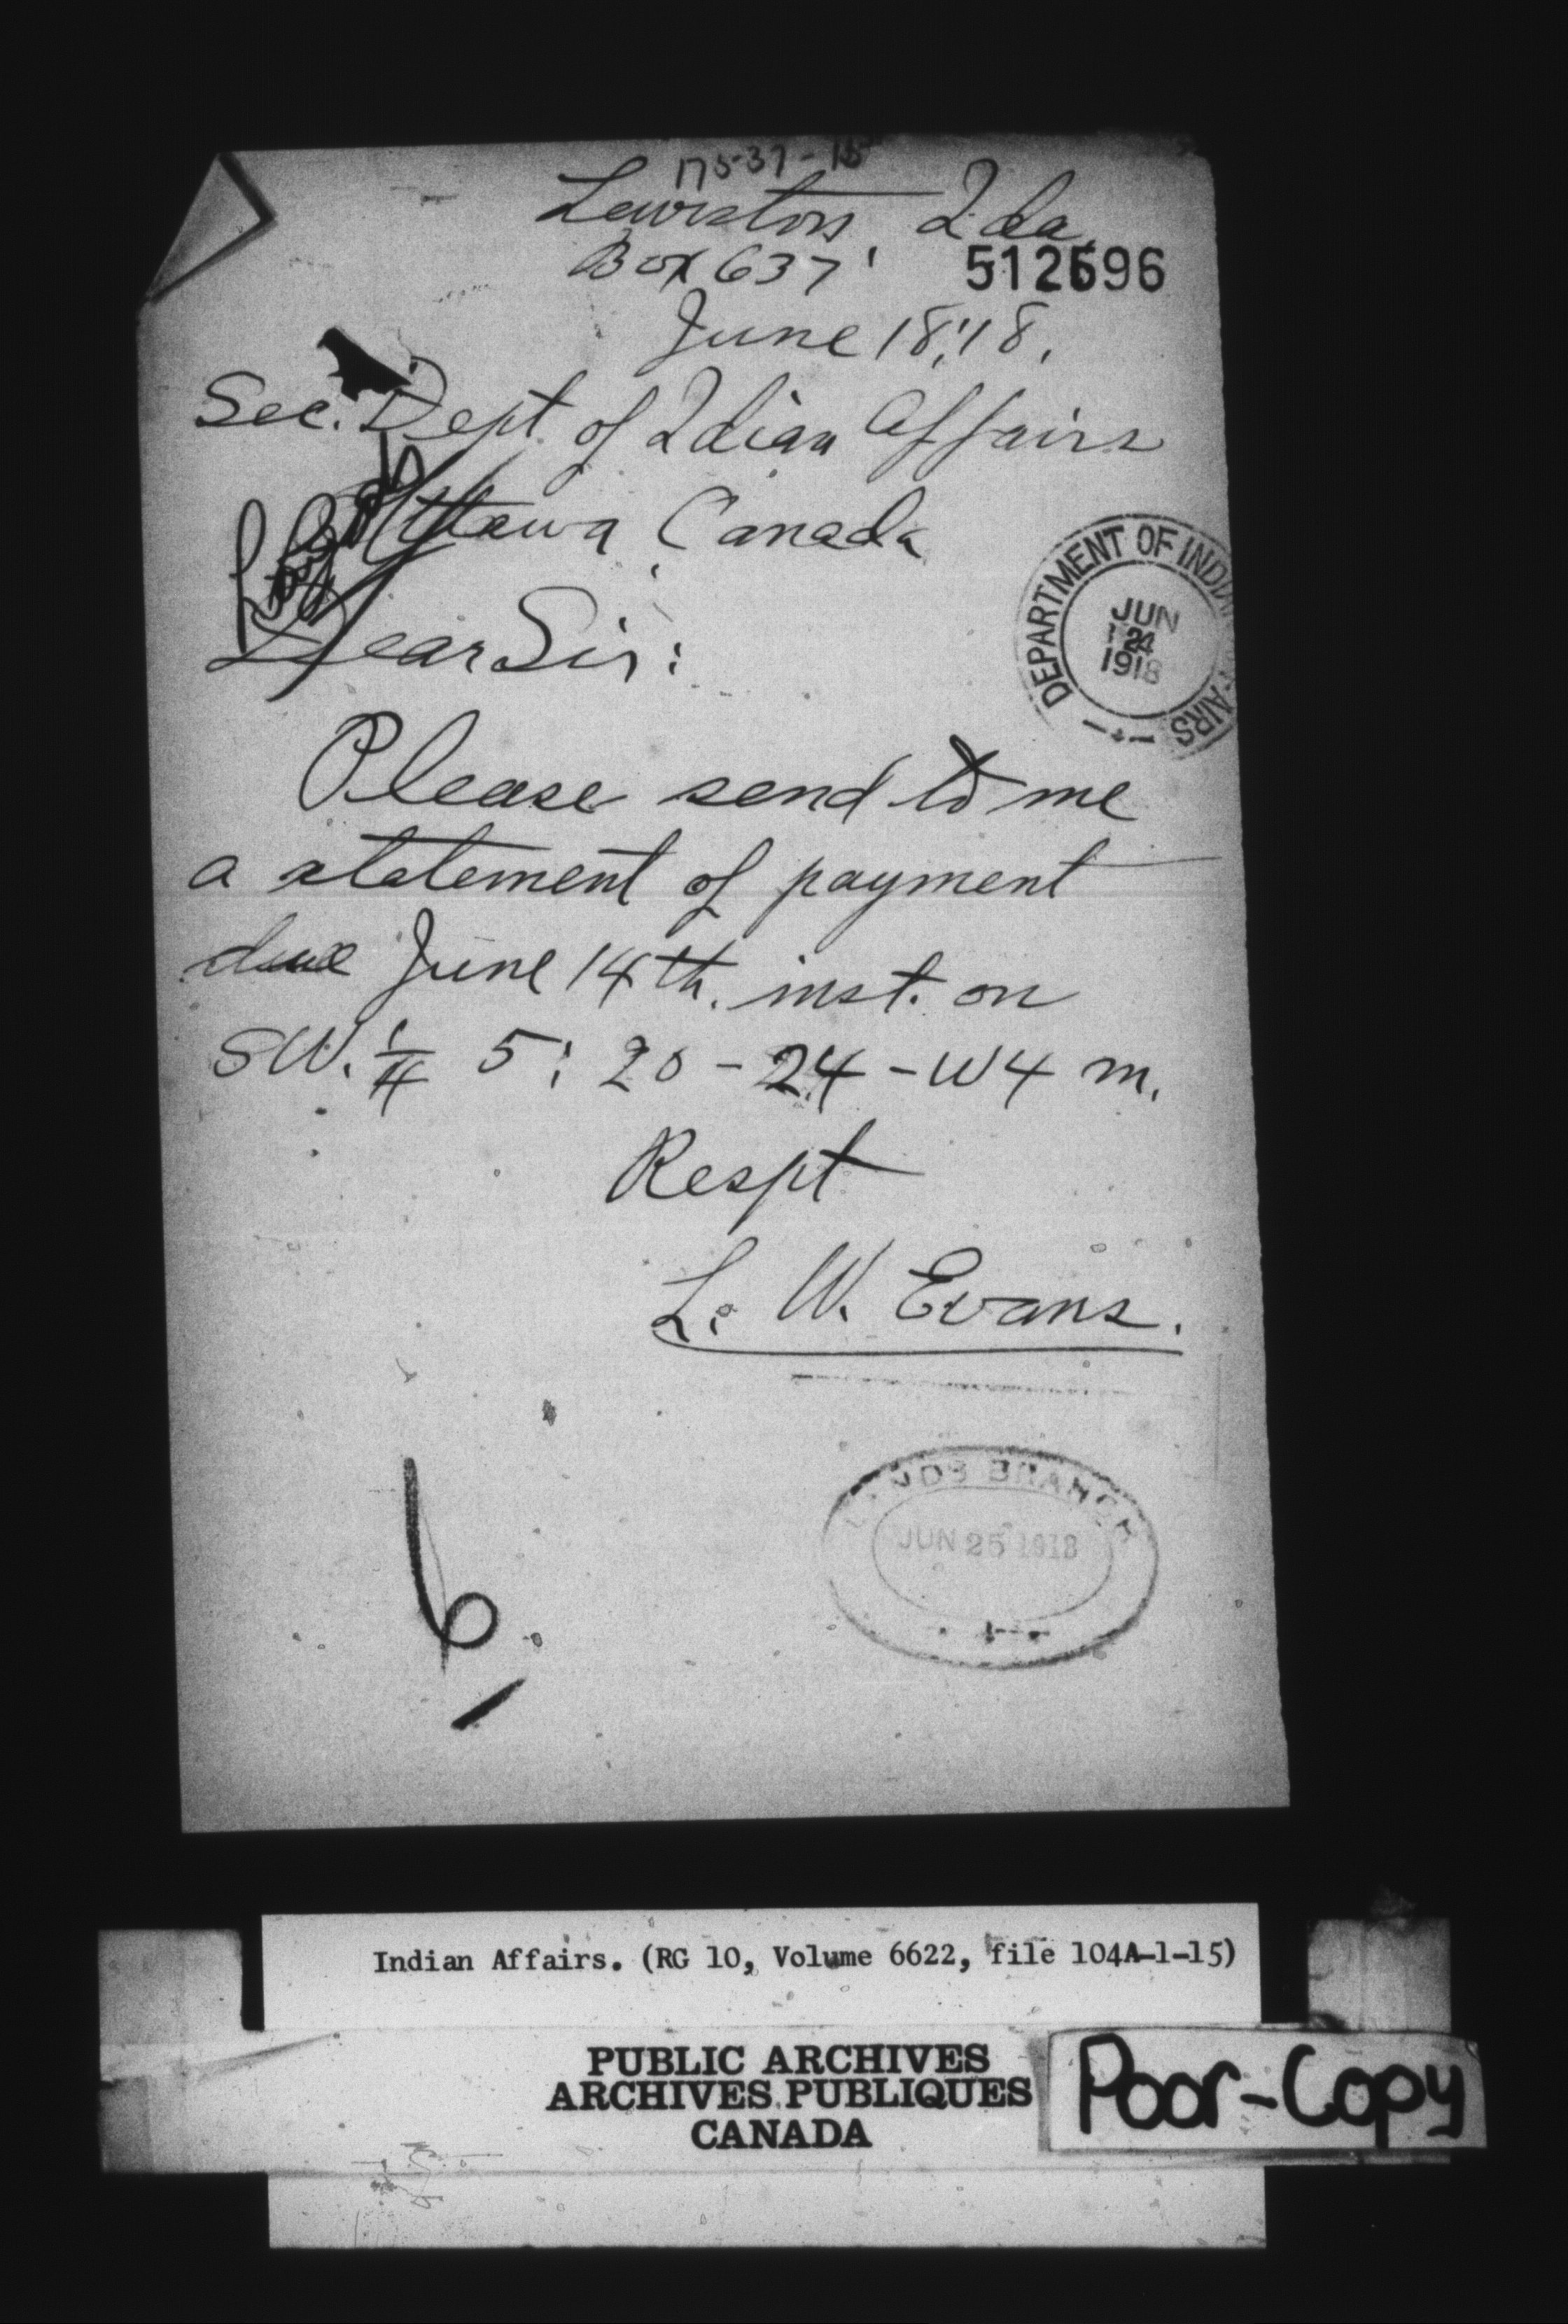 17537-15
Lewiston Ida.
Box 637
512696
June 18,'18.
Sec. Dept. of Idian Affairs
Ottawa Canada
Dear Sir:
DEPARTMENT OF INDIAN AFFAIRS
JUN
24
1918
Please send to me
a statement of payment
due June 14th. inst. on
SW. 1/4 5; 20-24-W4 m.
Respt
L. W. Evans.
LANDS BRANCH
JUN 25 1918
Indian Affairs. (RG 10, Volume 6622, file 104A-1-15)
PUBLIC ARCHIVES
ARCHIVES PUBLIQUES
CANADA
Poor-Copy